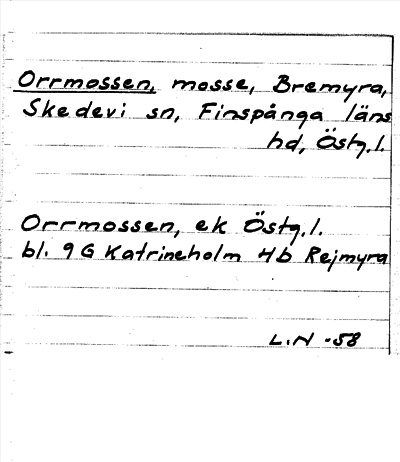 Orrmossen, mosse, Bremyra,
Skedevi sn, Finspånga läns
hd, Östg.l.
Orrmossen, ek Östg.l.
bl. 9G Katrineholm 4b Rejmyra
L.N -58